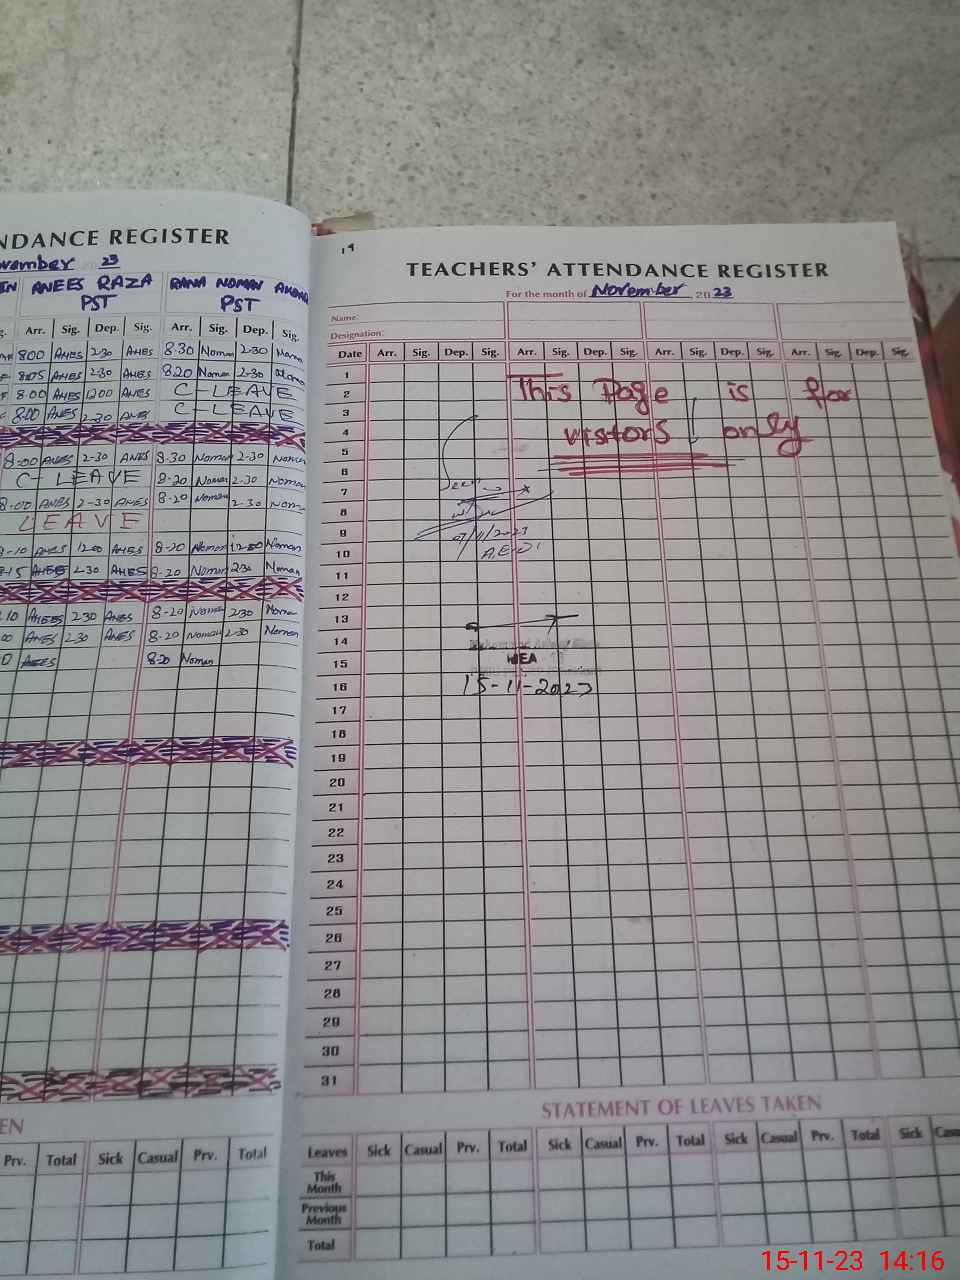 NDANCE REGISTER
vember 2023
IN ANEES RAZA RANA NOMAN
PST PST
g. Arr. Sig. Dep. Sig. Arr. Sig. Dep. Sig.
8:00 ANES 2-30 ANES 8-30 Noman 2-30 Noman
8:05 ANES 2-30 ANES 8-20 Noman 2-30
8:00 ANES 1200 ANES C-LEAVE
8:00 ANES 2-30 ANES C-LEAVE
8-00 ANES 2-30 ANES 8-30 Noman 2-30 Noman
C-LEAVE 8-20 Noman 2-30 Noman
8-00 ANES 2-30 ANES 8-20 Noman 2-30 Noman
LEAVE
8-10 ANES 1200 ANES 8-20 Noman 12-00 Noman
8-15 ANEES 2-30 ANES 8-20 Noman 2-30 Noman
10 ANEES 2-30 ANES 8-20 Noman 2-30 Noman
00 ANES 2-30 ANES 8-20 Noman 2-30 Noman
0 ANEES 8-20 Noman
EN
Prv. Total Sick Casual Prv. Total
19
TEACHERS' ATTENDANCE REGISTER
For the month of November, 2023
Name:
Designation:
Date Arr. Sig. Dep. Sig. Arr. Sig. Dep. Sig. Arr. Sig. Dep. Sig. Arr. Sig. Dep. Sig.
1
2 This Page is for
3
4 visitors only
5
6
7 Seen
8
9 07/11/2023
10 A.E.O
11
12
13
14
15 MEA
16 15-11-2023
17
18
19
20
21
22
23
24
25
26
27
28
29
30
31
STATEMENT OF LEAVES TAKEN
Leaves Sick Casual Prv. Total Sick Casual Prv. Total Sick Casual Prv. Total Sick Cas
This Month
Previous Month
Total
15-11-23 14:16